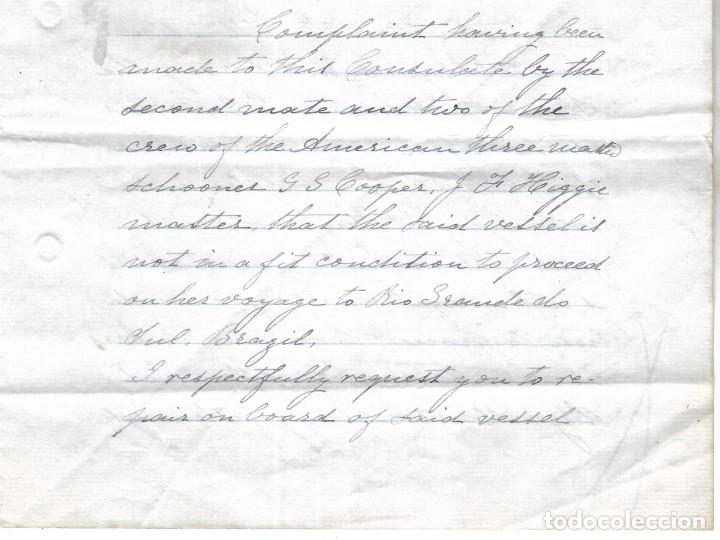 Complaint having been
made to this Consulate by the
second mate and two of the
crew of the American three masted
schooner G S Cooper, J F Higgie
master, that the said vessel is
not in a fit condition to proceed
on her voyage to Rio Grande do
Sul, Brazil.
I respectfully request you to re-
pair on board of said vessel
todocoleccion.net